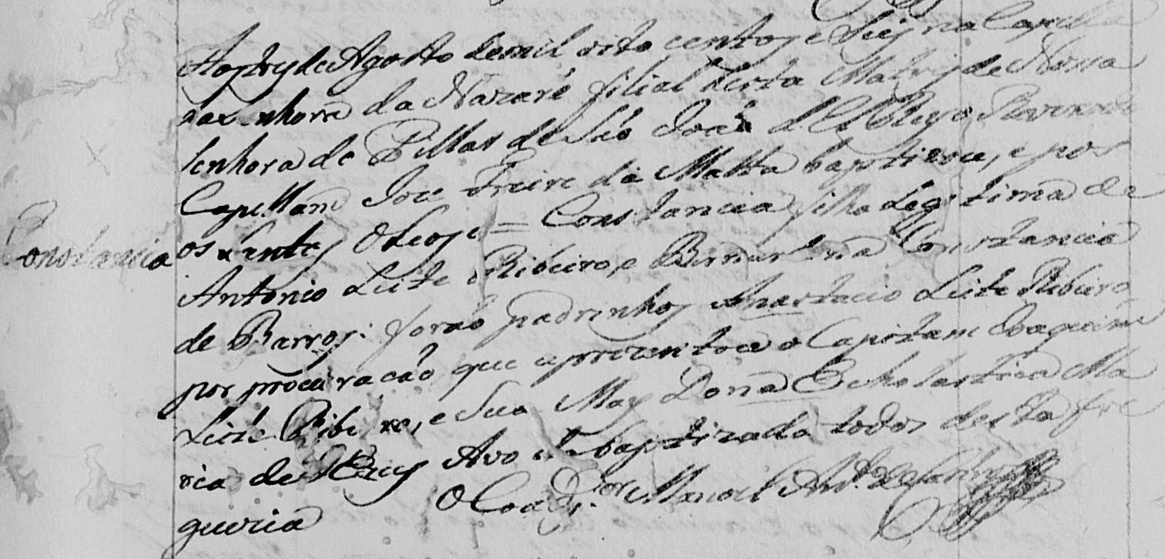 Aos tres de Agosto de mil oito centos e seis na Capella
da Senhora da Nazaré filial desta Matris de Nossa
Senhora do Pillar de São João d'El Rey o Reverendo
Capellam Joze Freire da Matta baptizou, e pos
Constancia
os Santos Oleos a = Constancia filha legitima de
Antonio Leite Ribeiro, e Bernardina Constancia
de Barros: forão padrinhos Anastacio Leite Ribeiro,
por procuração que aprezentou o Capitam Joaquim
Leite Ribeiro, e sua May Dona Escholastica Ma
ria de Avo da baptizada todos desta fre
guezia
O Coad.or Manoel Ant.o de